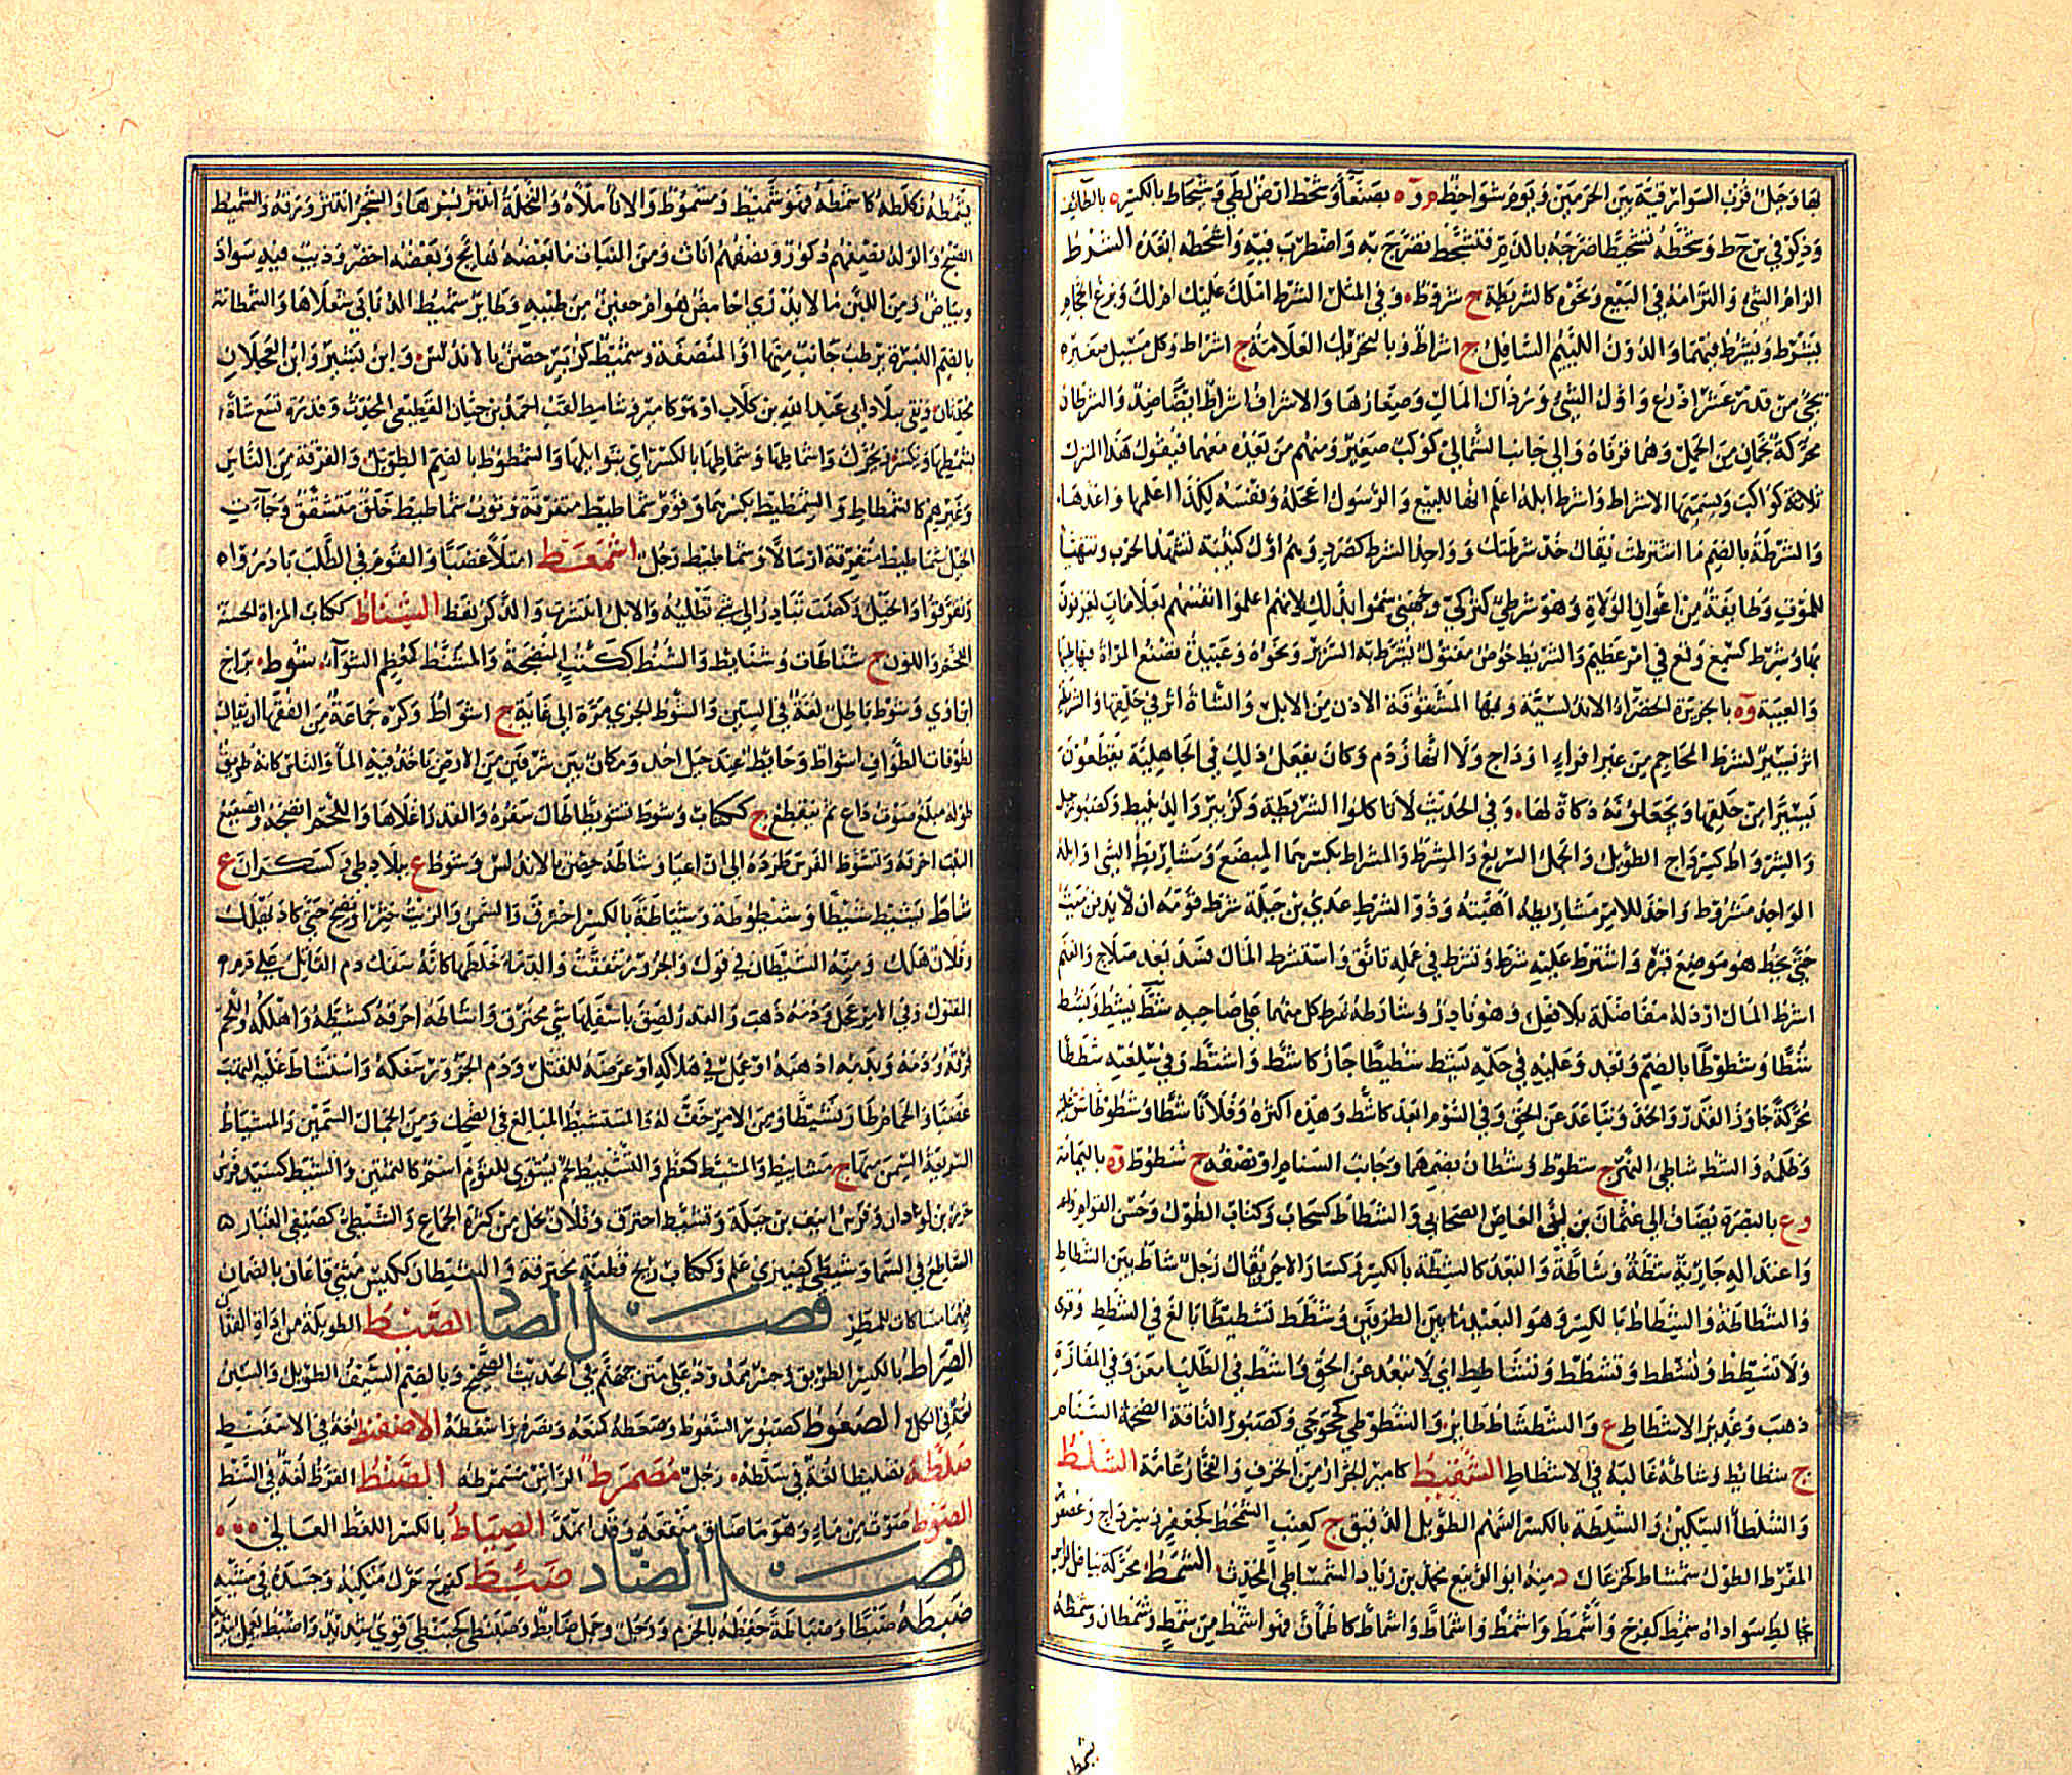 لها وجبل قرب السوارقية بين الحرمين ويوم شواحط م وة بصنعاء وشحط ارض لطيئ وشيحاط بالكسر ة بالطائف
وذكر في س ح ط وشحطه تشحيطا ضرجه بالدم فتشحط تضرج به واضطرب فيه واشحطه ابعده الشرط
الزام الشئ والتزامه في البيع ونحوه كالشريطة ج شروط وفي المثل الشرط املك عليك ام لك وبزغ الحجام
يشرط ويشرط فيهما والدون اللئيم السافل ج اشراط وبالتحريك العلامة ج اشراط وكل مسيل صغير
يجئ من قدر عشر اذرع واول الشئ ورذال المال وصغارها والاشراف اشراط ايضا ضد والشرطان
محركة نجمان من الحمل وهما قرناه والى جانب الشمالي كوكب صغير ومنهم من يعده معهما فيقول هذا المنزل
ثلاثة كواكب ويسميها الاشراط واشرط ابله اعلم انها للبيع والرسول اعجله ونفسه لكذا اعلمها واعدها
والشرطة بالضم ما اشترطت يقال خذ شرطتك وواحد الشرط كصرد وهم اول كتيبة تشهد الحرب وتتهيأ
للموت وطائفة من اعوان الولاة وهو شرطي كتركي وجهني سموا بذلك لانهم اعلموا انفسهم بعلامات يعرفون
بها وشرط كسمع وقع في امر عظيم والشريط خوص مفتول يشرط به السرير ونحوه وعتيدة تضع المراة فيها طيبها
والعيبة وة بالجزيرة الخضراء الاندلسية وبهاء المشقوقة الاذن من الابل والشاة اثر في حلقها
اثر يسير كشرط المحاجم من غير افراء اوداج ولا انهار دم وكان يفعل ذلك في الجاهلية يقطعون
يسيرا من حلقها ويجعلونه ذكاة لها وفي الحديث لا تاكلوا الشريطة وكزبير والد نبيط وكصبور جبل
والشرواط كسرداج الطويل والجمل السريع والمشرط والمشراط بكسرهما المبضع ومشاريط الشئ اوائله
الواحد مشروط واخذ للامر مشاريطه اهبته وذو الشرط عدي بن جبلة شرط قومه ان لا يدفن ميت
حتى يخط هو موضع قبره واشترط عليه شرط وتشرط في عمله تانق واستشرط المال فسد بعد صلاح والغنم
اشرط المال ارذله مفاضلة بلا فعل وهو نادر وشارطه شرط كل منهما على صاحبه شط يشط ويشط
شطا وشطوطا بالضم وبعد وعليه في حكمه يشط شطيطا جار كاشط واشتط وفي سلعته شططا
محركة جاوز القدر والحد وتباعد عن الحق وفي السوم ابعد كاشط وهذه اكثر وفلانا شطا وشطوطا شق عليه
وظلمه والشط شاطئ النهر ج شطوط وشطان بضمهما وجانب السنام او نصفه ج شطوط وة باليمامة
وع بالبصرة يضاف الى عثمان بن ابي العاص الصحابي والشطاط كسحاب وكتاب الطول وحسن القوام
واعتداله جارية شطة وشاطة والبعد كالشطة بالكسر وكسار الاجر يقال رجل شاط بين الشطاط
والشطاطة والشطاط بالكسر وهو البعيد ما بين الطرفين وشطط تشطيطا بالغ في الشطط وقرئ
ولا تشطط ولا تشطط وتشطط وتشاطط اي لا تبعد عن الحق واشط في الطلب امعن وفي المفازة
ذهب وغدير الاشطاط ع والشطشاط طائر والشطوطى كخجوجى وكصبور الناقة الضخمة السنام
ج شطائط وشاطه غالبه في الاشطاط الشفيط كامير الجرار من الخزف والفخار عامة الشلط
والشلطاء السكين والشلطة بالكسر السهم الطويل الدقيق ج كعنب الشمحط كجعفر وسرداج وعصفور
المفرط الطول شمشاط كخزعال د منه ابو الربيع محمد بن زياد الشمشاطي المحدث الشمط محركة بياض الراس
يخالط سواده شمط كفرح واشمط واشمط واشماط واشماط كاطمأن فهو اشمط من شمط وشمطان وشمطه
يشمطه
يشمطه خلطه كاشمطه فهو شميط ومشموط والاناء ملأه والنخلة انتثر بسرها والشجر انتثر ورقه والشميط
الصبح والولد نصفهم ذكور ونصفهم اناث ومن النبات ما بعضه هائج وبعضه اخضر وذئب فيه سواد
وبياض ومن اللبن ما لا يدرى احامض هو ام حقين من طيبه وطائر شميط الذنابى شعلاها والشمطانة
بالضم البسرة يرطب جانب منها او المنصفة وشميط كزبير حصن بالاندلس وابن بشير وابن العجلان
محدثان ونقى ببلاد ابي عبد الله بن كلاب او هو كامير وشامط لقب احمد بن حيان القطيعي المحدث وقدر تسع شاة
بشمطها وتكسر ويحرك واشماطها وشماطها بالكسر اي بتوابلها والشمطوط بالضم الطويل والفرقة من الناس
وغيرهم كالشمطاط والشمطيط بكسرهما وقوم شماطيط متفرقة وثوب شماطيط خلق متشقق وجاءت
الخيل شماطيط متفرقة ارسالا وشماطيط رجل اشمعط امتلأ غضبا والقوم في الطلب بادروا
وتفرقوا والخيل ركضت تبادر الى شئ تطلبه والابل انتشرت والذكر نعظ الشناط ككتاب المراة الحسنة
اللحم واللون ج شناطات وشنائط والشنط ككتب المنضجة والمشنط كمعظم الشواء شوط براح
ابن آوى وشوط باطل لغة في السين والشوط الجري مرة الى غاية ج اشواط وكره جماعة من الفقهاء ان يقال
لطوفات الطواف اشواط وحائط عند جبل احد ومكان بين شرفين من الارض ياخذ فيه الماء والناس كانه طريق
طوله مبلغ صوت داع ثم ينقطع ج ككتاب وشوط تشويطا طال سفره والقدر اغلاها واللحم انضجه والصقيع
النبت احرقه وتشوط الفرس طرده الى ان اعيا وشاطة حصن بالاندلس وشوط ع ببلاد طي وكسكران ع
شاط يشيط شيطا وشيطوطة وشياطة بالكسر احترق والسمن والزيت خثرا او نضج حتى كاد يهلك
وفلان هلك ومنه الشيطان في قول والجزور تنفقت والدماء خلطها كانه سفك دم القاتل على دم
المقتول وفي الامر عجل ودمه ذهب والقدر لصق باسفلها شئ محترق واشاطه احرقه كشيطه واهلكه واللحم
فرقه ودمه وبدمه اذهبه او عمل في هلاكه او عرضه للقتل ودم الجزور سفكه واستشاط عليه التهب
غضبا والحمام طار نشيطا ومن الامر خف له والمستشيط المبالغ في الضحك ومن الجمال السمين والمشياط
السريعة السمن منها ج مشاييط والمشيط كمعظم والتشييط لحم يشوى للقوم اسم كالتمتين والشيط كسيد فرس
خزز بن لوذان وفرس انيف بن جبلة وتشيط احترق وفلان نحل من كثرة الجماع والشيطي كصيفي الغبار
الساطع في السماء وشيطى كضيزى علم وككتاب ريح قطنة محترقة والشيطان ككيس مثنى قاعان بالصمان
فيهما مساكات للمطر فصل الصاد الصبط الطويلة من اداة الفدان
الصراط بالكسر الطريق وجسر ممدود على متن جهنم في الحديث الصحيح وبالضم السيف الطويل والسين
لغة في الكل الصعوط كصبور السعوط وصعطه كمنعه ونصره واصعطه الاصفنط لغة في الاسفنط
صلطه تصليطا لغة في سلطه رجل مصمرط الراس مسمرطه الصنط القرظ لغة في السنط
الصوط صوت من ماء وهو ما ضاق منقعه وقد امتد الصياط بالكسر اللغط العالي
فصل الضاد ضئط كفرح حرك منكبيه وجسده في مشيه
ضبطه ضبطا وضباطة حفظه بالحزم ورجل وجمل ضابط وضبنطى كحبنطى قوي شديد واضبط يعمل بيديه